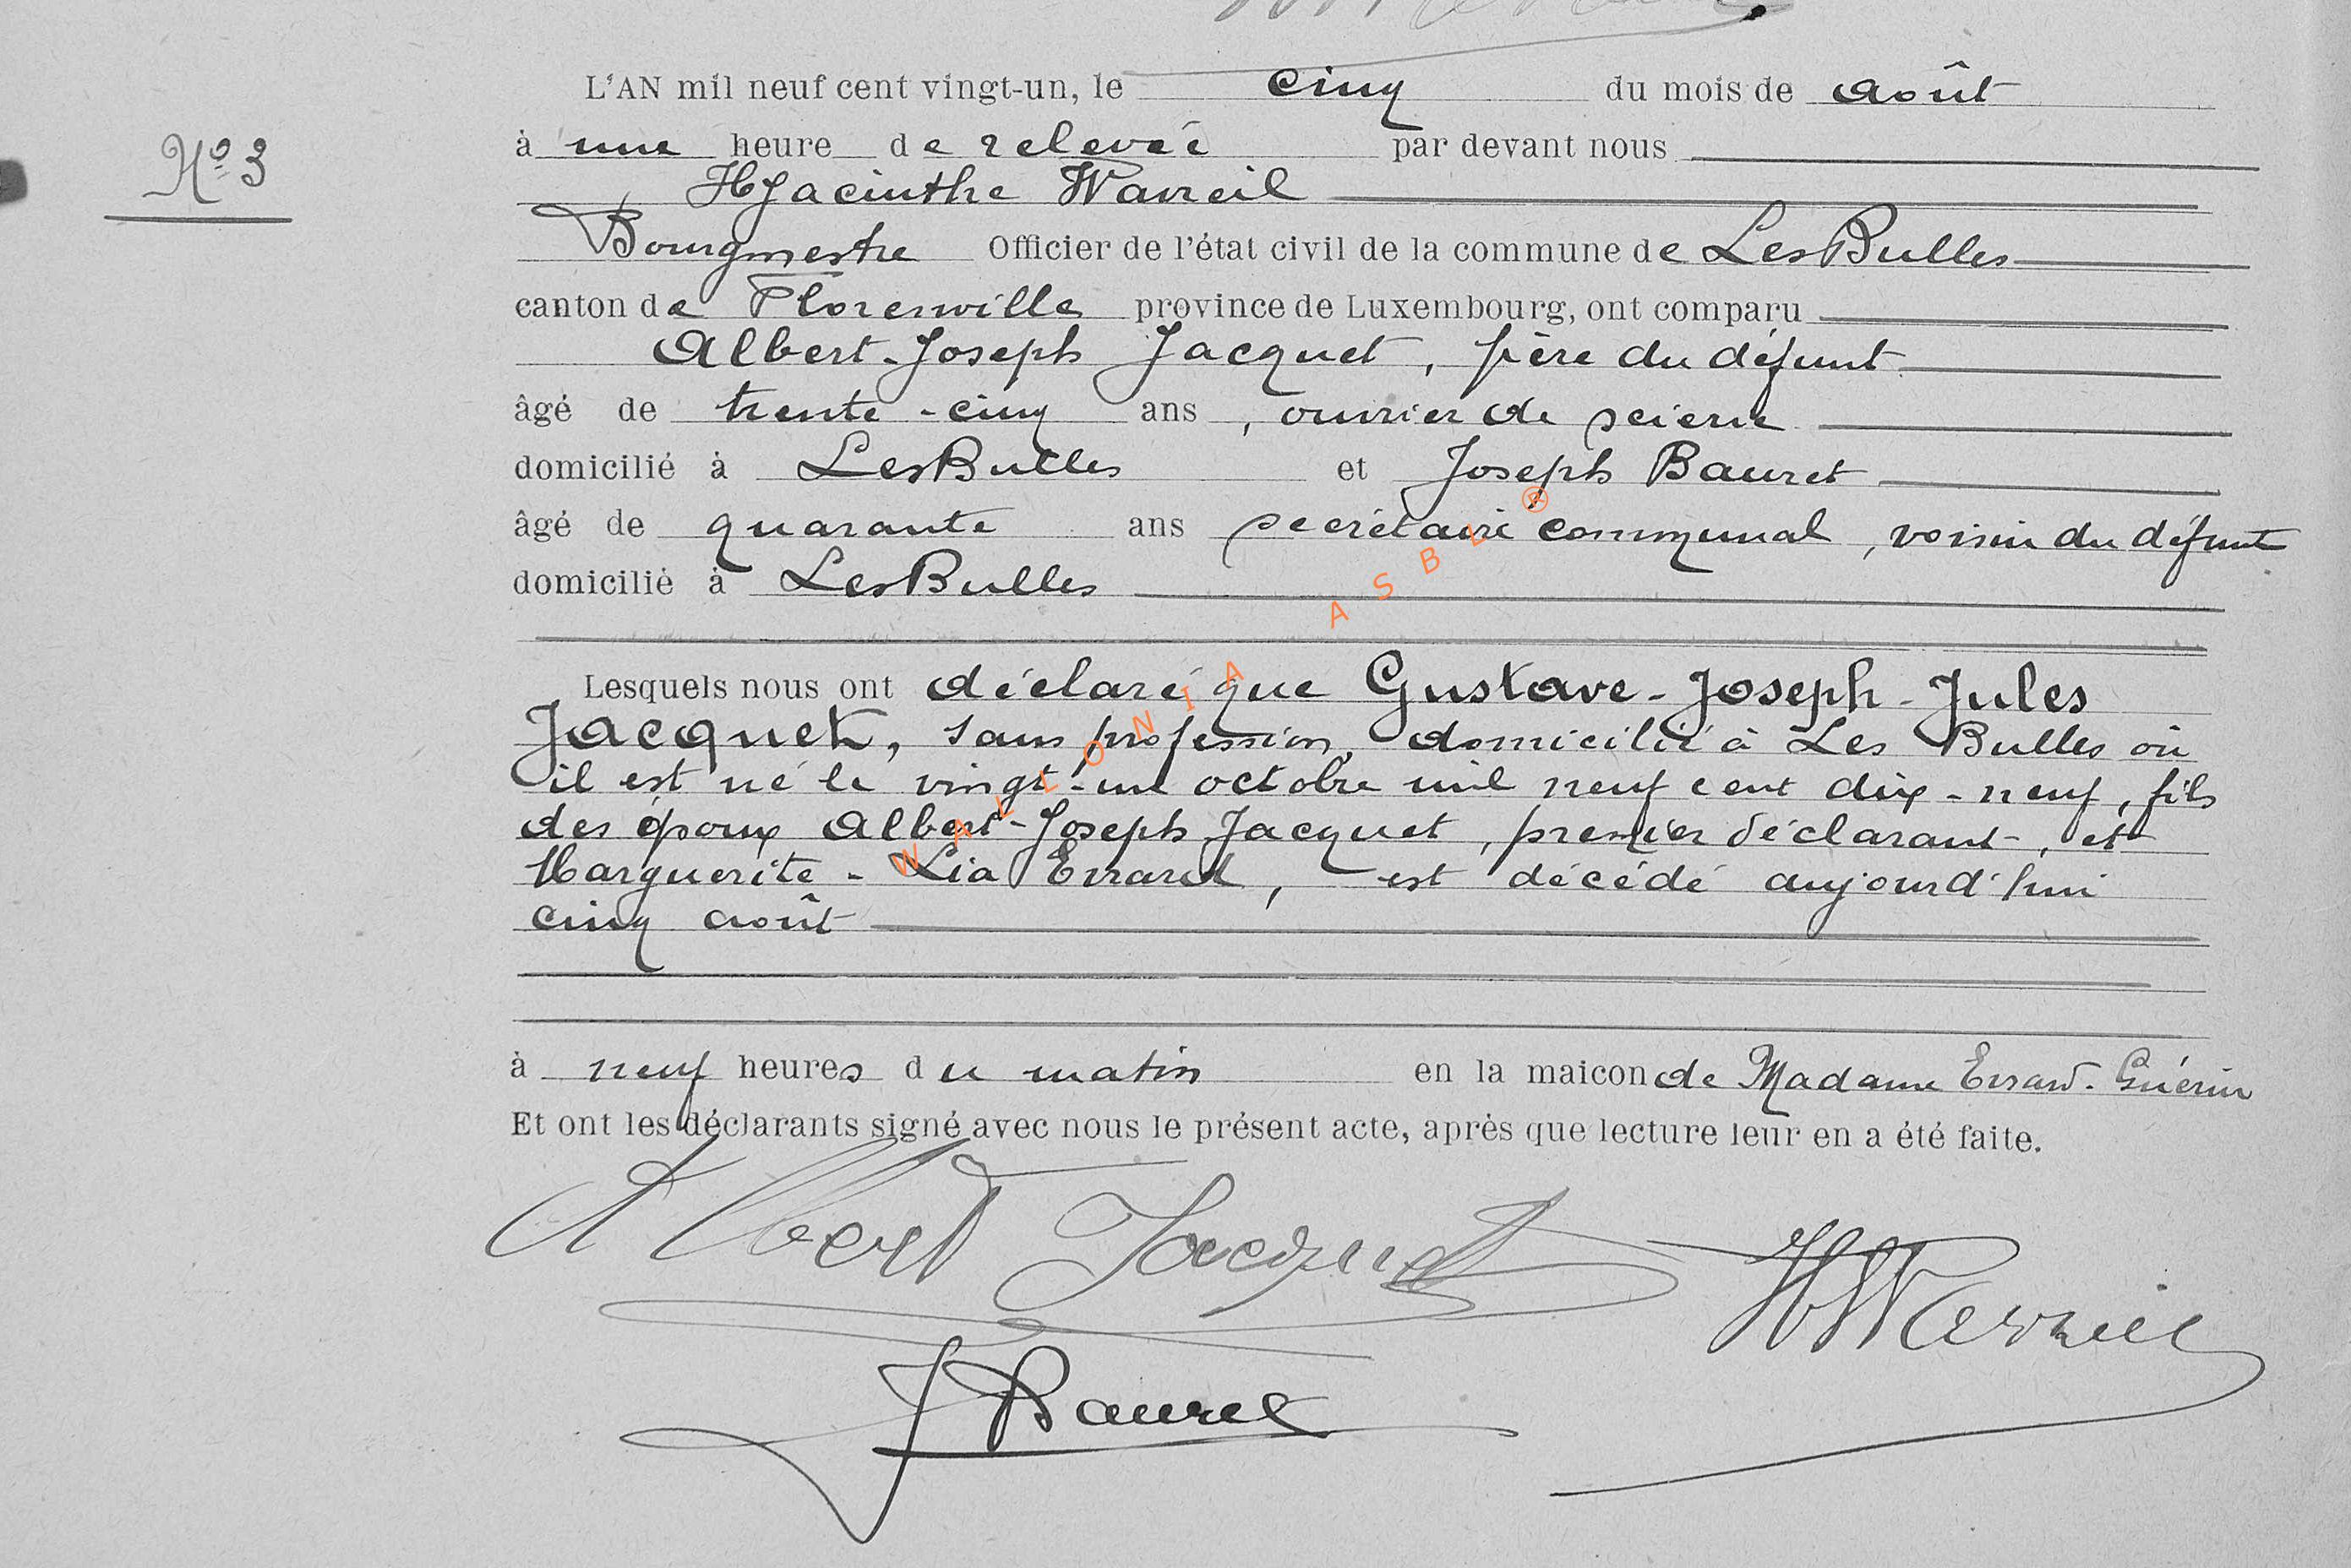 L'AN mil neuf cent vingt-un, le cinq du mois de août
N° 3
à une heure de relevée par devant nous
Hyacinthe Wavreil
Bourgmestre Officier de l'état civil de la commune de Les Bulles
canton de Florenville province de Luxembourg, ont comparu
Albert-Joseph Jacquet, père du défunt
âgé de trente-cinq ans, ouvrier de scierie
domicilié à Les Bulles et Joseph Bauret
âgé de quarante ans secrétaire communal, voisin du défunt
domicilié à Les Bulles
WALLONIA ASBL ®
Lesquels nous ont déclaré que Gustave-Joseph-Jules
Jacquet, sans profession, domicilié à Les Bulles où
il est né le vingt-un octobre mil neuf cent dix-neuf, fils
des époux Albert-Joseph Jacquet, premier déclarant, et
Marguerite-Lia Errard, est décédé aujourd'hui
cinq août
à neuf heures du matin en la maicon de Madame Errard-Guérin
Et ont les déclarants signé avec nous le présent acte, après que lecture leur en a été faite.
Albert Jacquet
HWavreil
J Bauret